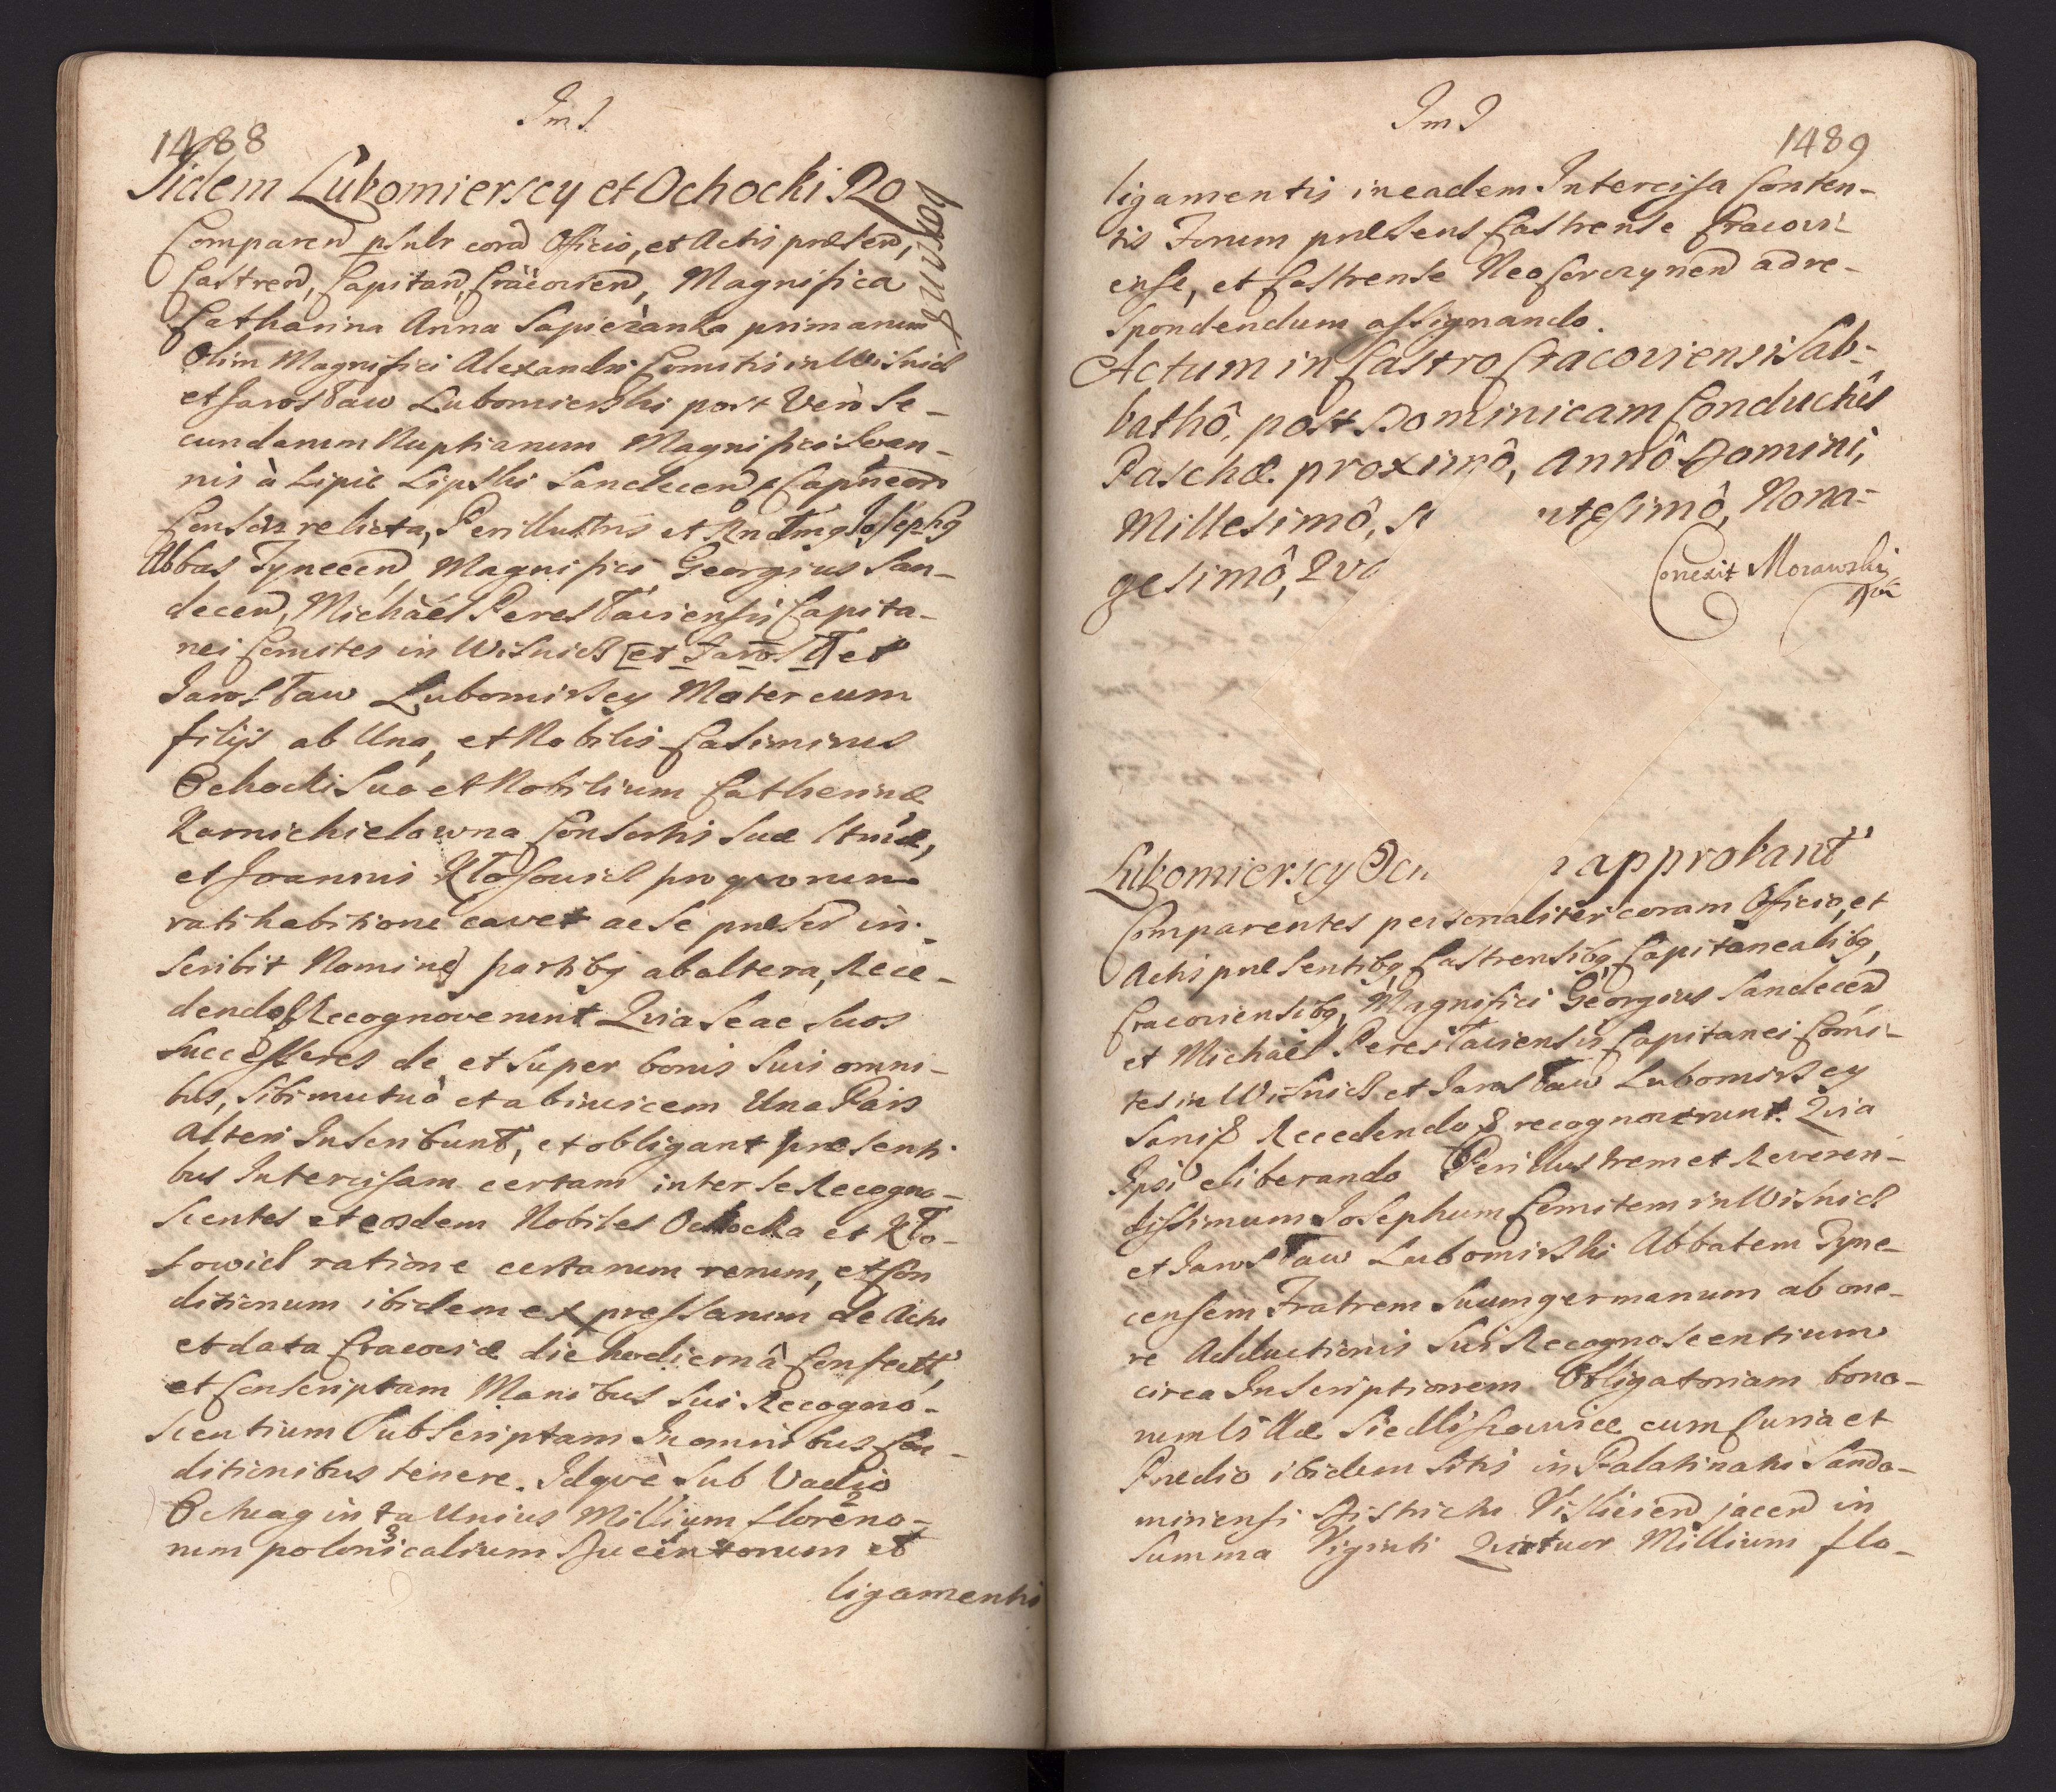 Im I
1488
Iidem Lubomierscy et Ochocki Ro
borant
Comparen psnlr corā Officio, et Actis præsen,
Castren, Capitan, Cracovien, Magnifica
Catharina Anna Sapiezanka primarum
Olim Magnifici Alexandri Comitis in Wisnicz
et Jarosław Lubomierski post verò Se-
cundarum Nuptiarum Magnifici Ioan-
nis à Lipie Lipski Sandecen Capnei
Consors relicta, Perillustris et Rndmg Josephg
Abbas Tynecen, Magnifici Georgius San-
decen, Michàél Peresławiensis Capita-
nei Comites in Wisnicz et Jarosł et
Jarosław Lubomirscy Mater cum
filijs ab Una, et Nobilis Casimirus
Ochocki Suo et Nobilium Catherinæ
Karnichielowna Consortis Suæ
et Joannis Kłosowicz pro quorum
ratihabitione cavet ac se præsen in-
scribit Nomine partibg ab altera, Rece-
dendo Recognoverunt Qvia Se ac Suos
Successores de et Super bonis Suis omni-
bus, Sibi mutuò et ab invicem Una Pars
Alteri Inscribunt, et obligant præsenti-
bus Intercisam certam inter Se Recogno-
scentes et eosdem Nobiles Ochocka et Kło-
sowicz ratione certarum rerum, et Con
ditionum ibidem expressarum de Actu
et data Cracoviæ die hodiernâ Confectā,
et Conscriptam Manibus Sui Recogno-
scentium Subscriptam In omnibus Con-
ditionibus tenere. Idqvè Sub Vadio
Octuaginta Unius Millium floreno-
rum polonicalium Ducentorum et
ligamentis
Im I
1489
ligamentis in eadem Intercisa Conten-
tis Forum præsens Castrense Cracovi-
ense, et Castrense Neo Corczynen ad re-
spondendum assignando.
Actum in Castro Cracoviensi Sab-
bathô, post Dominicam Conductûs
Paschæ proximô, Annô Domini,
Millesimô, S ntesimô, Nona-
gesimô, Qvo
Correxit Morawski
Lubomierscy approbant
Comparentes personaliter coram Officio, et
Actis præsentibg, Castrensibg, Capitanealibg,
Cracoviensibg, Magnifici Georgius Sandecen
et Michàél Peresławiensis Capitanei Comi-
tes in Wisnicz et Jarosław Lubomirscy
Sani Recedendo recognoverunt. Qvia
Ipsi eliberando Perillustrem et Reveren-
dissimum Josephum Comitem in Wisnicz
et Jarosław Lubomirski Abbatem Tyne-
censem Fratrem Suum germanum ab one-
re Adductionis Sui Recognoscentium
circa Inscriptionem Obligatoriam bono-
rum Villæ Siedliszowice cum Curia et
Prædio ibidem Sitis in Palatinatu Sando-
miriensi Districtu Vislicien jacen in
Summa Viginti Qvatuor Millium flo-